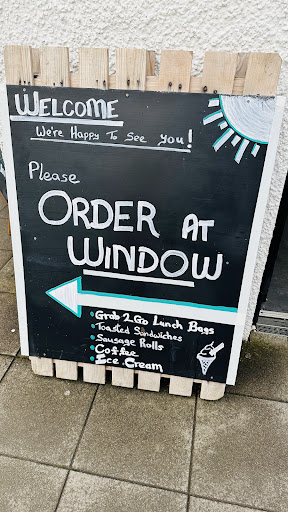 WELCOME
We're Happy To See you!
Please
ORDER AT
WINDOW
Grab 2 Go Lunch Bags
Toasted Sandwiches
Sausage Rolls
Coffee
Ice Cream